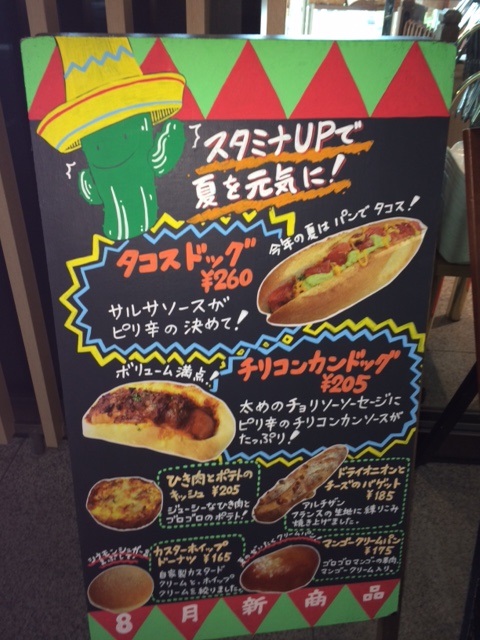 スタミナUPで
夏を元気に!
今年の夏はパンでタコス!
タコスドッグ
¥260
サルサソースが
ピリ辛の決めて!
ボリューム満点!!
チリコンカンドッグ
¥205
太めのチョリソーソーセージに
ピリ辛のチリコンカンソースが
たっぷり!
ひき肉とポテトの
キッシュ ¥205
ジューシーなひき肉と
ゴロゴロのポテト!
ドライオニオンと
チーズのバゲット
¥185
アルチザン
フランスの生地に練りこみ
焼き上げました。
カスターホイップ
ドーナツ ¥165
自家製カスタード
クリームと、ホイップ
クリームを絞りました
クリームパン
マンゴークリームパン
¥195
ゴロゴロマンゴーの果肉
マンゴークリーム入り。
8月新商品